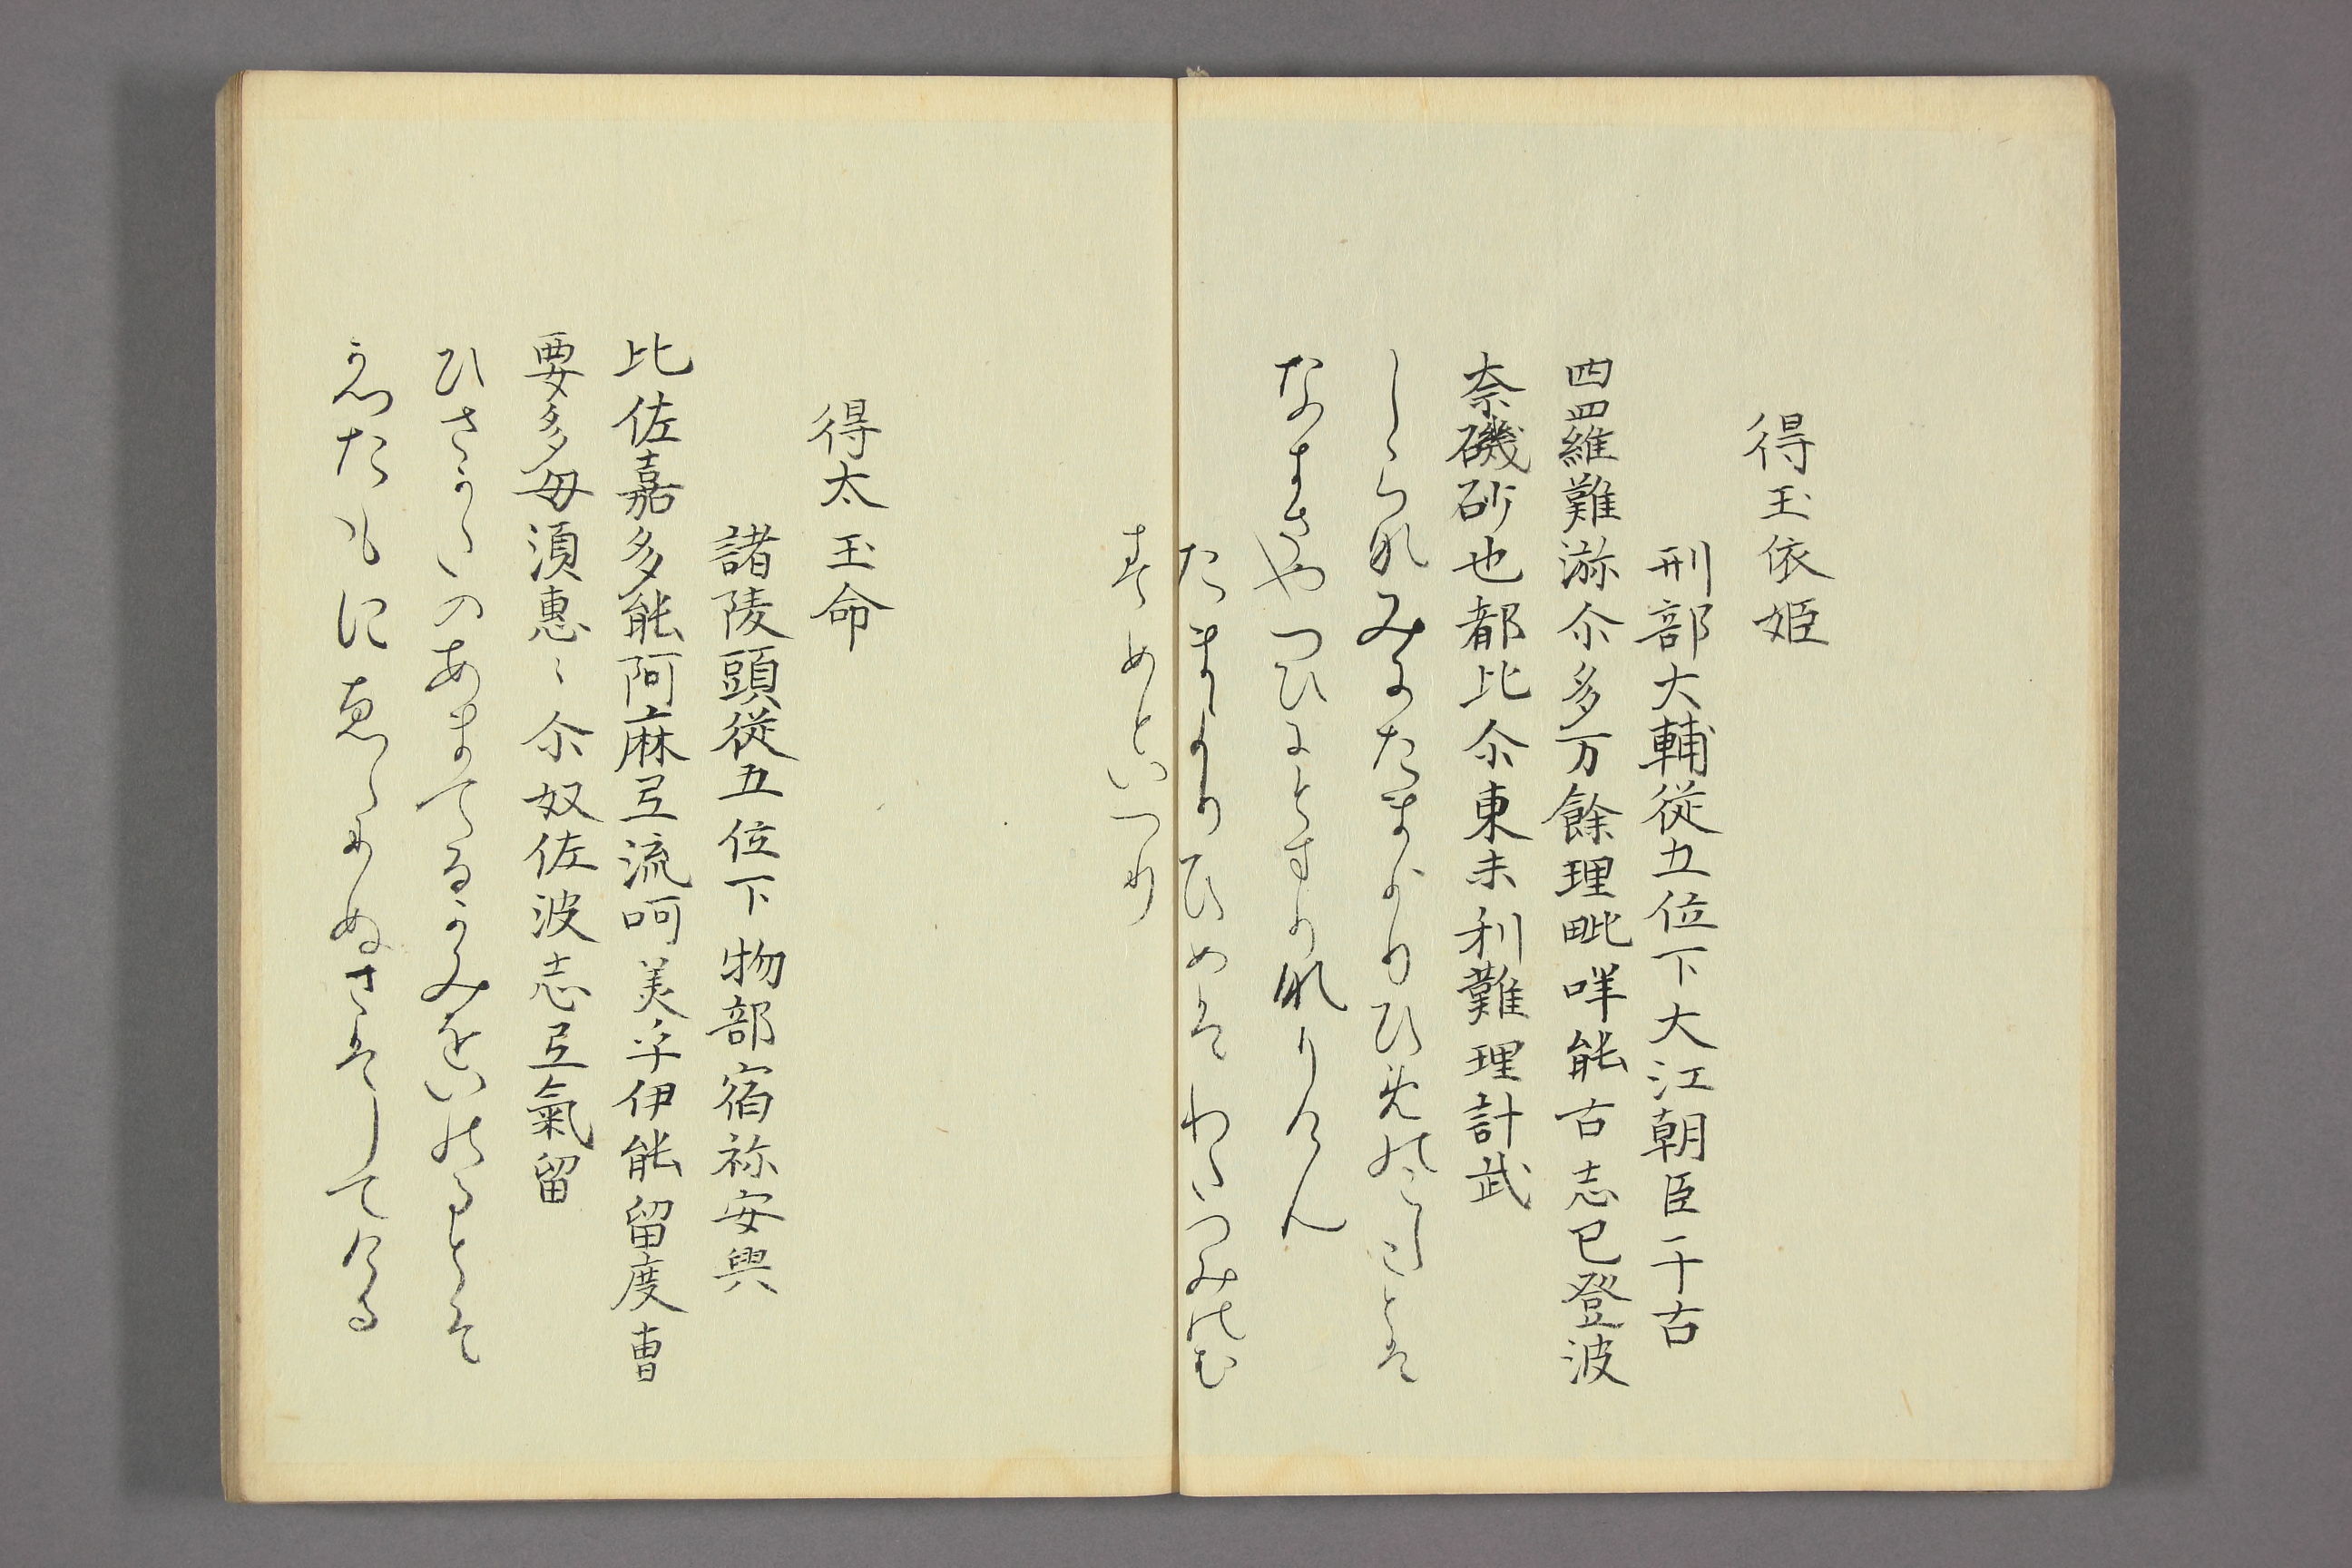 得玉依姫
刑部大輔従五位下大江朝臣千古
四羅難濔尒多万餘理毗咩能古志已登波
奈磯砂也都比尒東未利難理計武
しらなみにたまよりひめのこしことは
なきさやつひにとまりなりけん
たまよりひめはわたつみのむ
すめといへり
得太玉命
諸陵頭従五位下物部宿祢安興
比佐嘉多能阿麻弖流呵美乎伊能留度曽
要多毎湏惠〻尒奴佐波志弖氣留
ひさかたのあまてるかみをいのるとそ
えたもにゑにぬさはしてける